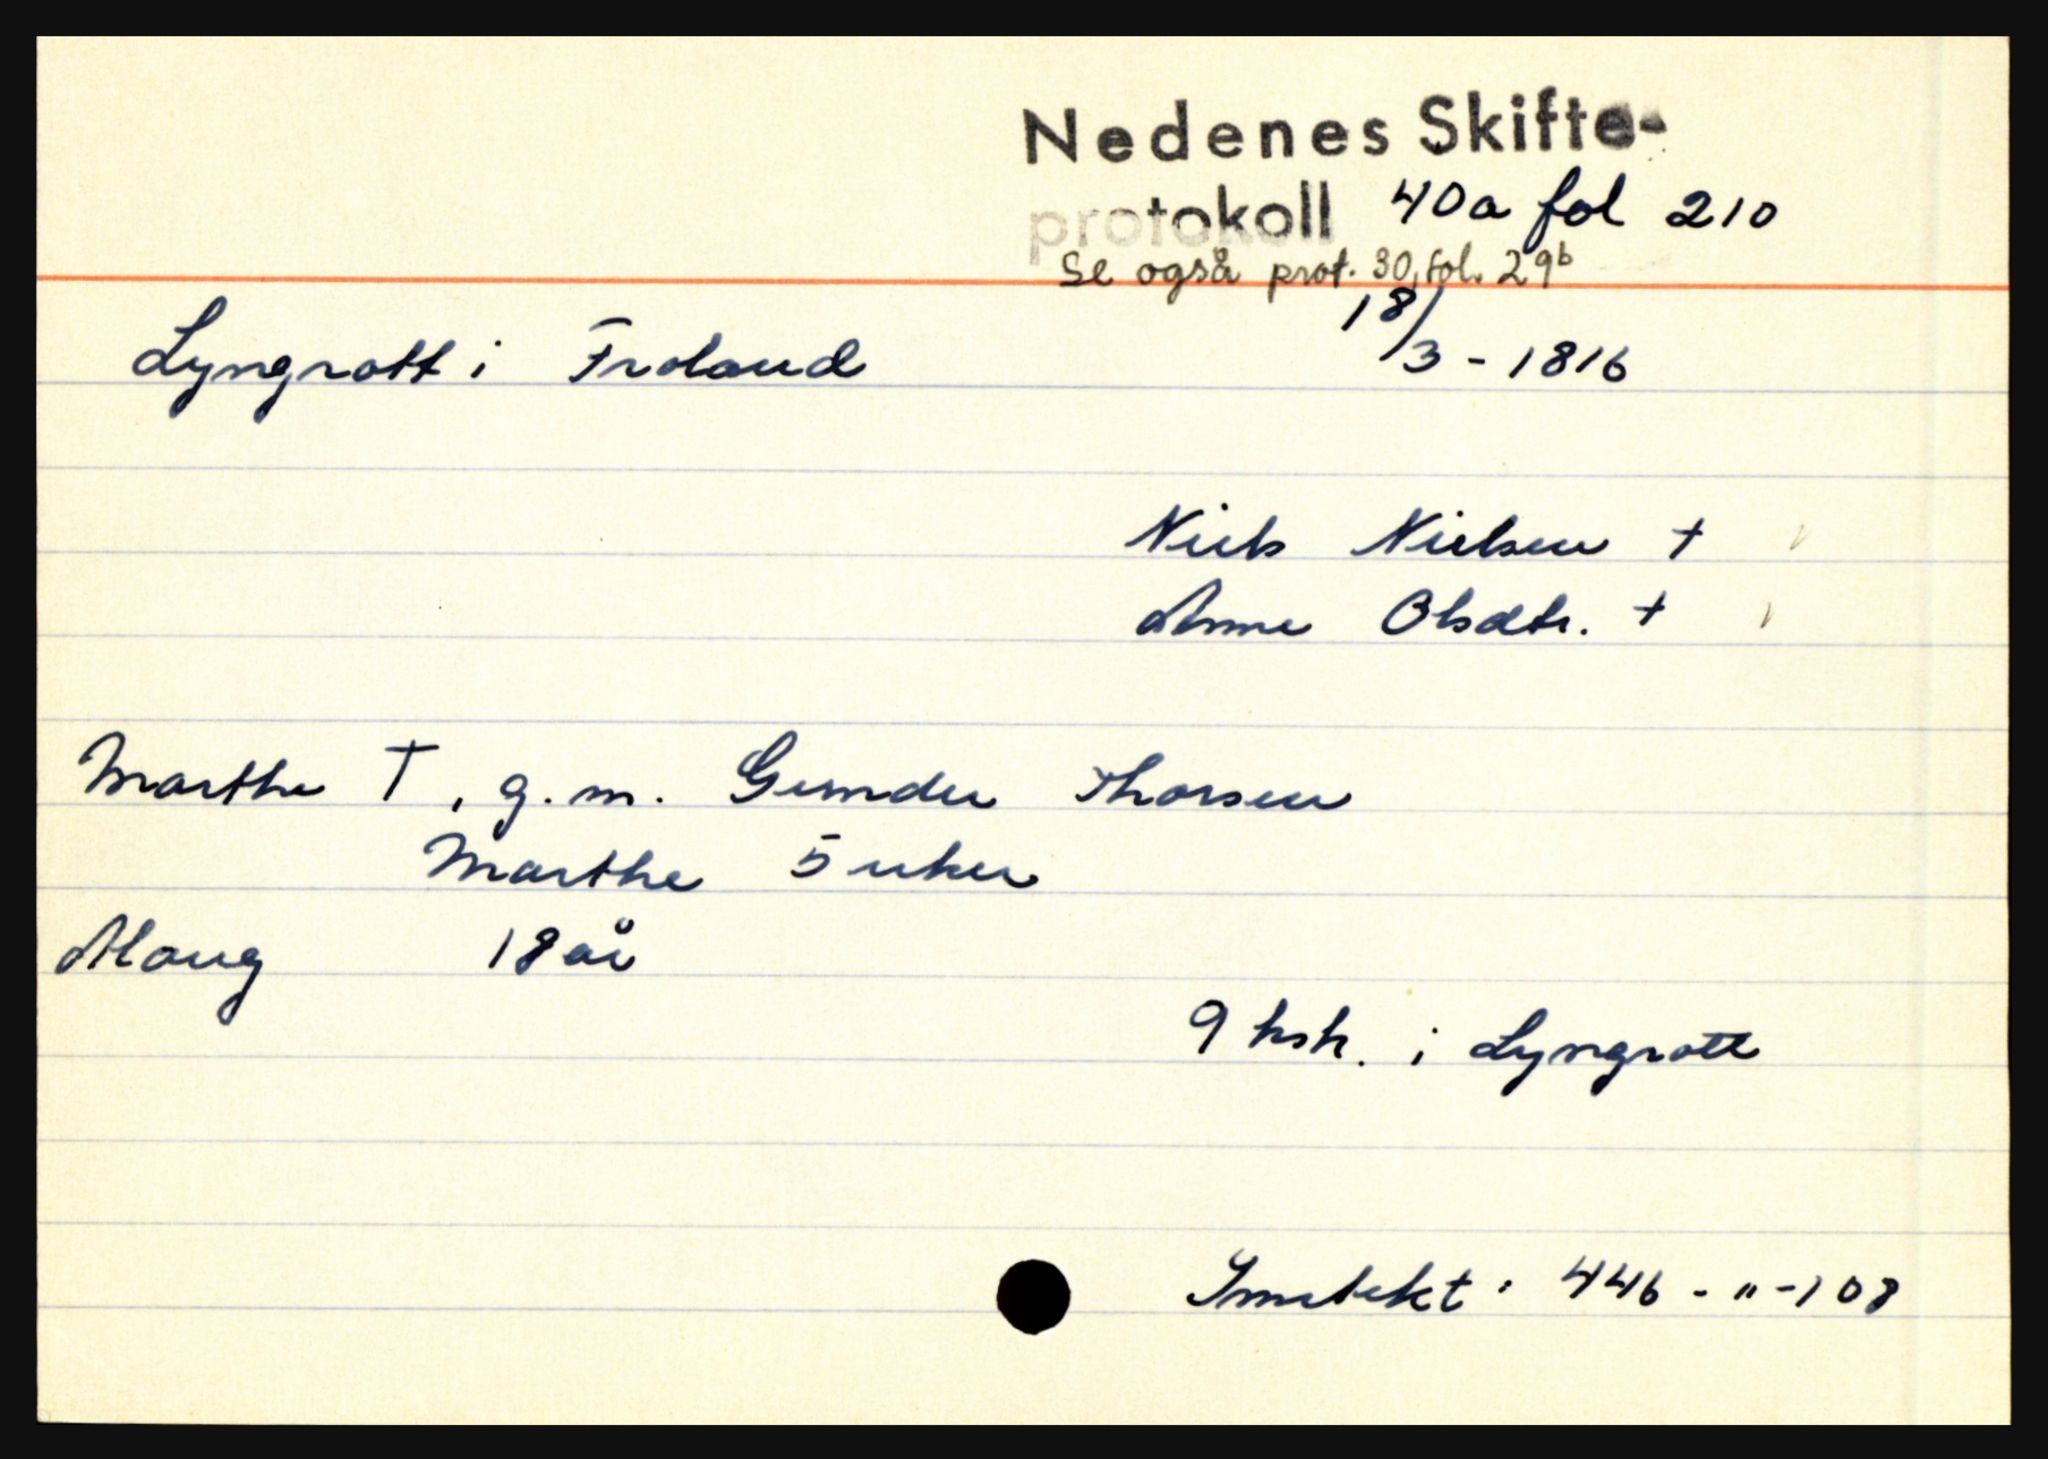 Nedenes Skifte-
protokoll 40a fol 210
Se også prot. 30, fol. 29b
18/3 - 1816
Lyngrott i Froland
Niels Nielsen †
Anne Olsdtr. †
Marthe †, g. m. Gunder Thorsen
Marthe 5 uker
Aloug 18 år
9 ksk. i Lyngrott
446 - " - 108